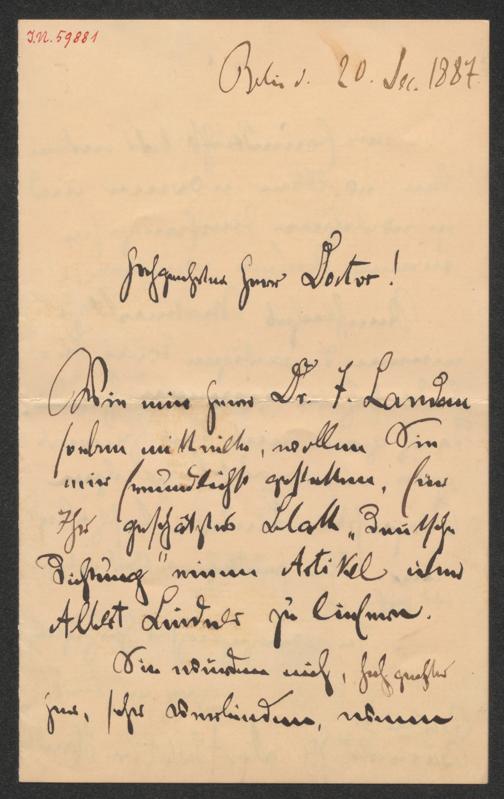 I.N. 59881
Berlin d. 20. Dec. 1887.
Hochgeehrter Herr Doctor!
Wie mir Herr Dr. F. Landau
soeben mittheilte, wollen Sie
mir freundlichst gestatten, für
Ihr geschätztes Blatt „Deutsche
Dichtung" einen Artikel über
Albert Lindner zu liefern.
Sie würden mich, hochgeehrter
Herr, sehr verbinden, wenn